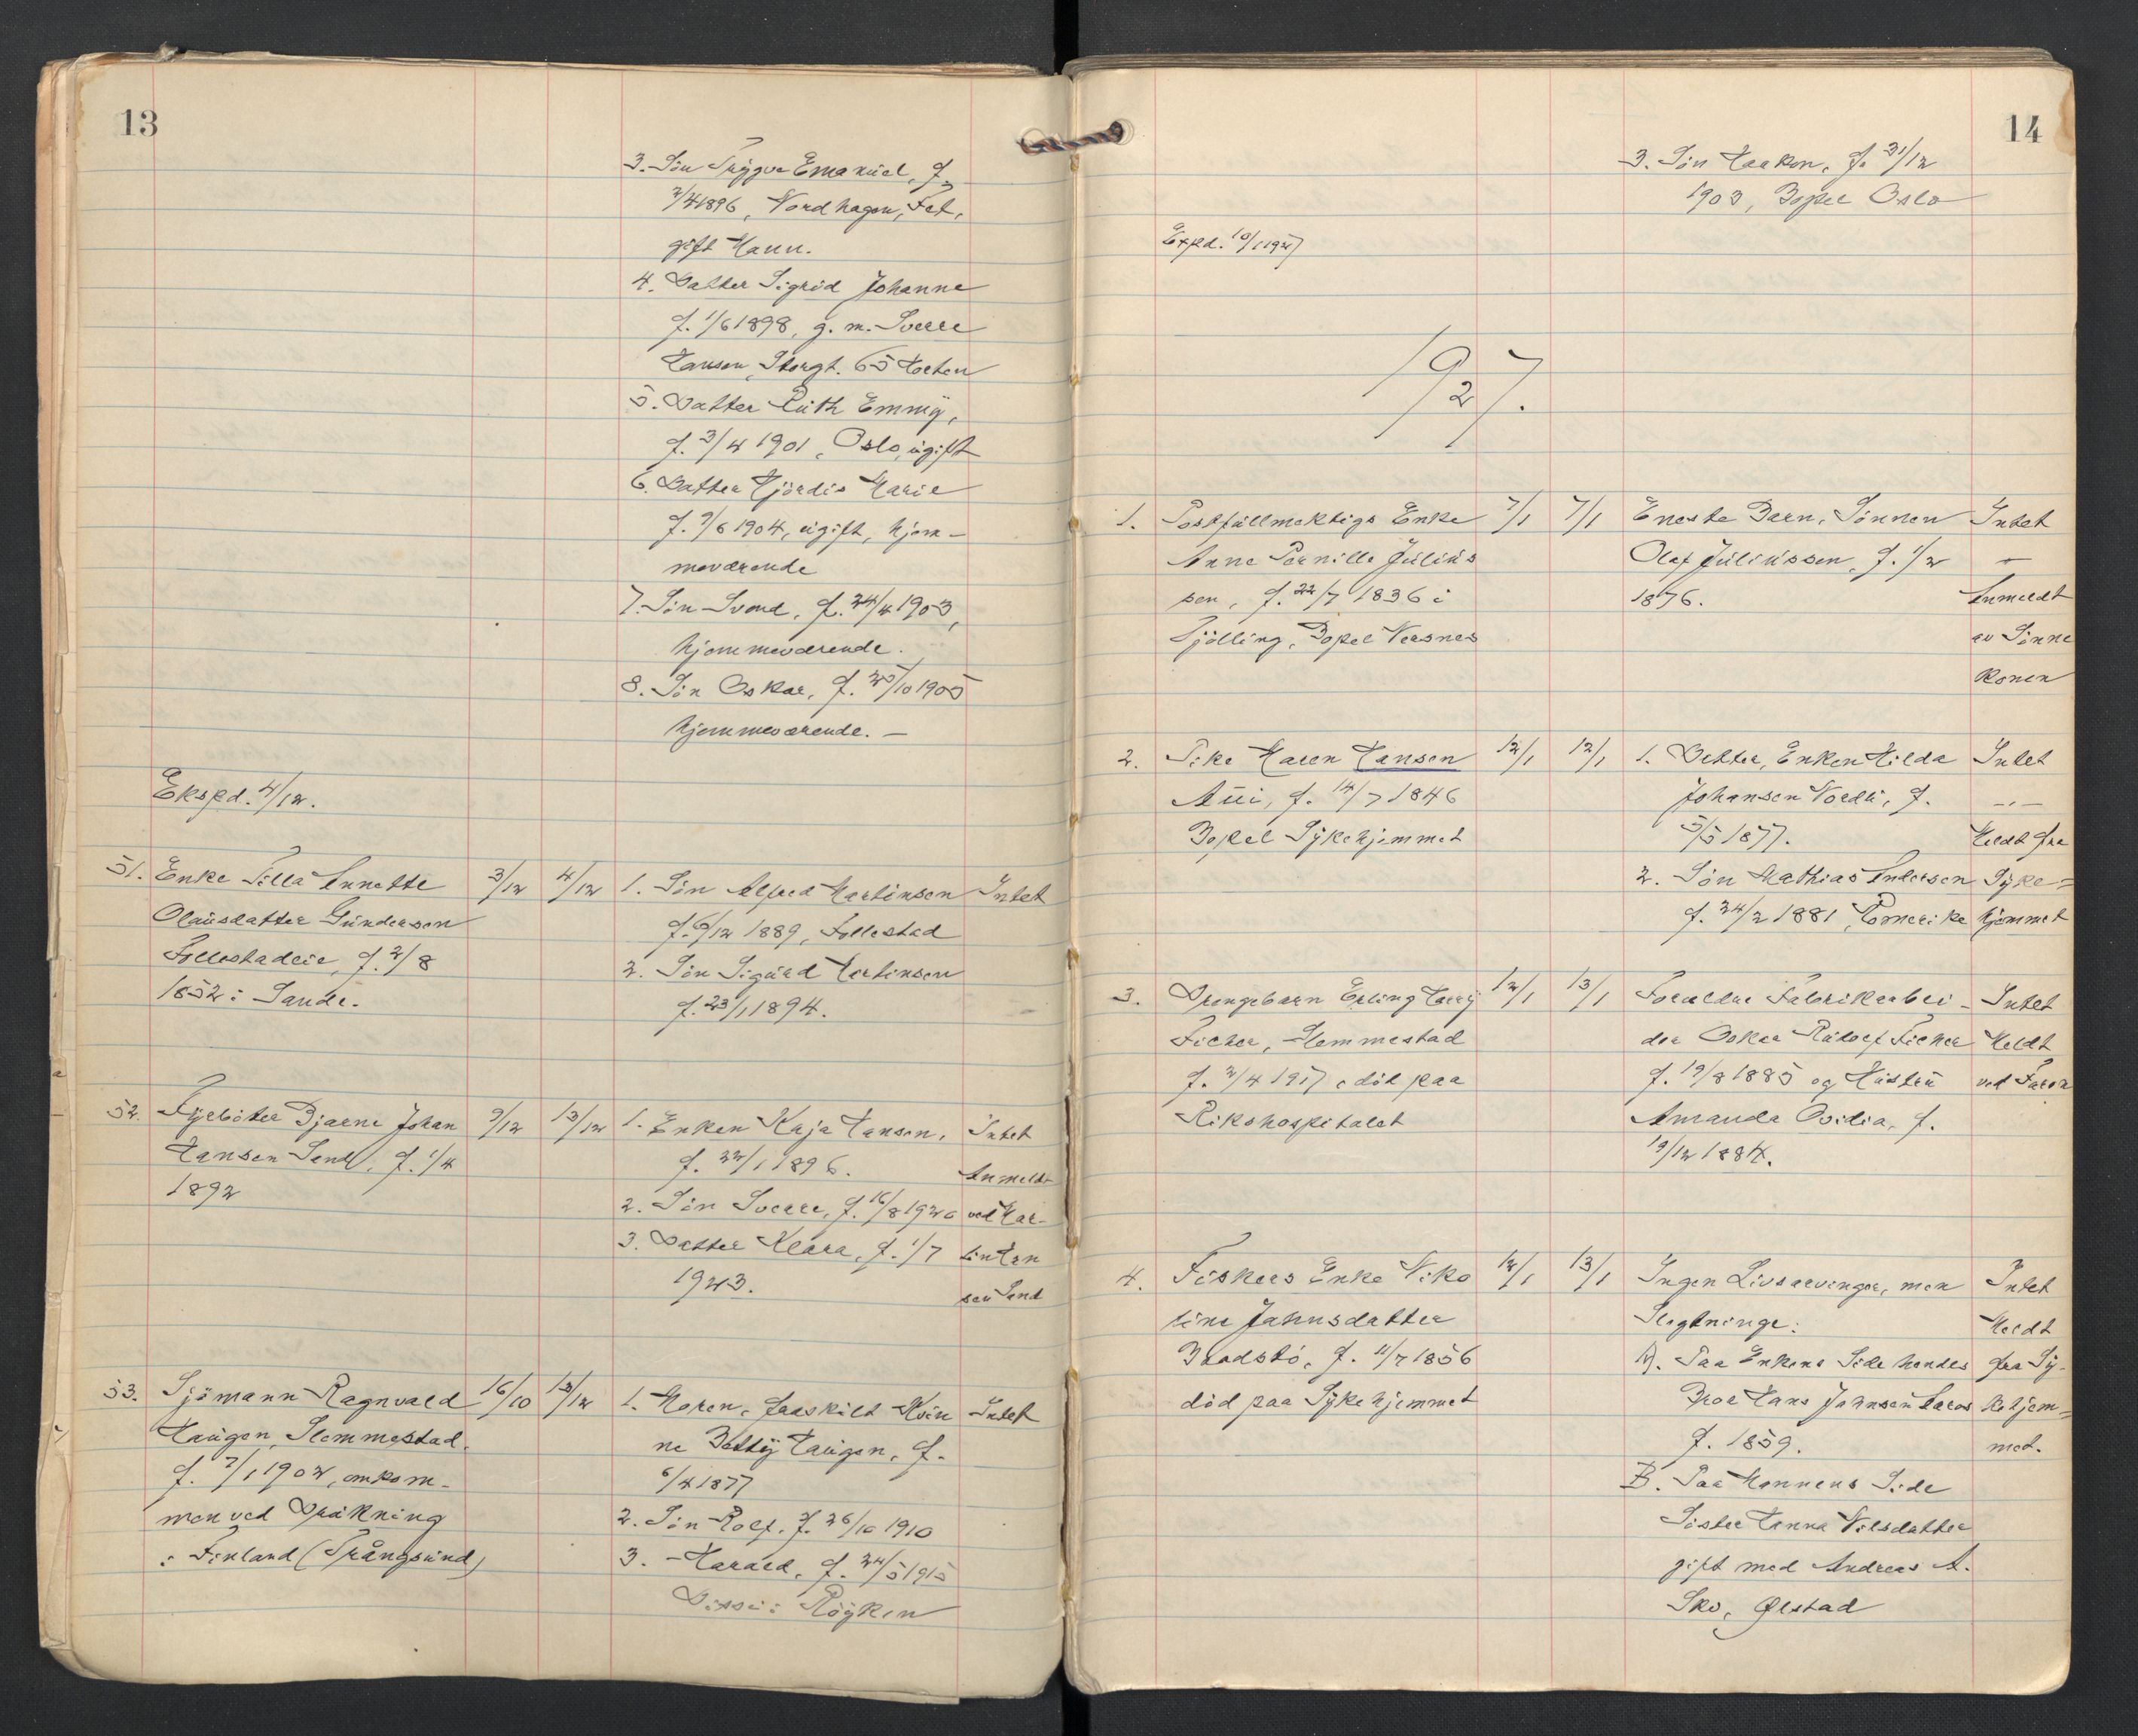 13
3. Sön Trygve Emanuel, f.
2/4 1896, Nordhagen, Fet,
gift Mann.
4. Datter Sigrid Johanne
f. 1/6 1898, g. m. Sverre
Hansen, Storgt. 65 Horten
5. Datter Ruth Emmy,
f. 3/4 1901, Oslo, ugift
6. Datter Hjördis Marie
f. 9/6 1904, ugift, hjem-
meværende
7. Sön Svend, f. 24/4 1903,
hjemmeværende.
8. Sön Oskar, f. 25/10 1905
hjemmeværende. —
Ekspd. 4/12.
51. Enke Tilla Annette 3/12 4/12 1. Sön Alfred Martinsen Intet
Olausdatter Gundersen f. 6/12 1889, Follestad
Follestadeie, f. 2/8 2. Sön Sigurd Martinsen
1852 i Sande. f. 23/1 1894.
52. Fyrböter Bjarne Johan 9/12 13/12 1. Enken Kaja Hansen, Intet
Hansen Sand, f. 1/4 f. 22/1 1896. Anmeldt
1892 2. Sön Sverre, f. 16/8 1920 ved Mar-
3. Datter Klara, f. 1/7 tin Han
1923. sen Sand
53. Sjömann Ragnvald 16/10 13/12 1. Moren, fraskilt Kvin Intet
Haugen, Slemmestad. ne Betty Haugen, f.
f. 7/1 1902, omkom- 6/4 1877
men ved Drukning 2. Sön Rolf, f. 26/10 1910
i Finland (Trångsund) 3. — Harald, f. 24/5 1915
Disse i Röyken
14
3. Sön Haakon, f. 31/12
1903, Bopel Oslo
Expd. 10/1 1927
1927.
1. Postfullmektigs Enke 7/1 7/1 Eneste Barn, Sönnen Intet
Anne Pernille Julius Olaf Juliussen, f. 1/2 —
sen, f. 22/7 1836 i 1876. Anmeldt
Tjölling, Bopel Nersnes av Sönne
konen
2. Pike Maren Hansen 12/1 12/1 1. Datter, Enken Hilda Intet
f. 14/7 1846 Johansen Nordli, f. —.—
Bopel Sykehjemmet 5/5 1877. Meldt fra
2. Sön Mathias Andersen Syke=
f. 24/2 1881, Romerike hjemmet
3. Drengebarn Erling Harry 12/1 13/1 Foreldre Fabrikarbei- Intet
Ficher, Slemmestad der Oskar Rudolf Ficher Meldt
f. 2/4 1917, död paa f. 19/8 1885 og Hustru ved Faren
Rikshospitalet Amanda Ovidia, f.
19/12 1884.
4. Fiskers Enke Niko 12/1 13/1 Ingen Livsarvinger, men Intet
line Jahnsdatter Slegtninge: Meldt
Baadstö, f. 11/7 1856 A. Paa Enkens Side hendes fra Sy-
död paa Sykehjemmet Bror Hans Jahnsen kehjem=
f. 1859. met.
B. Paa Mannens Side
Söster Hanna Nilsdatter
gift med Andreas A.
Sko, Ølstad